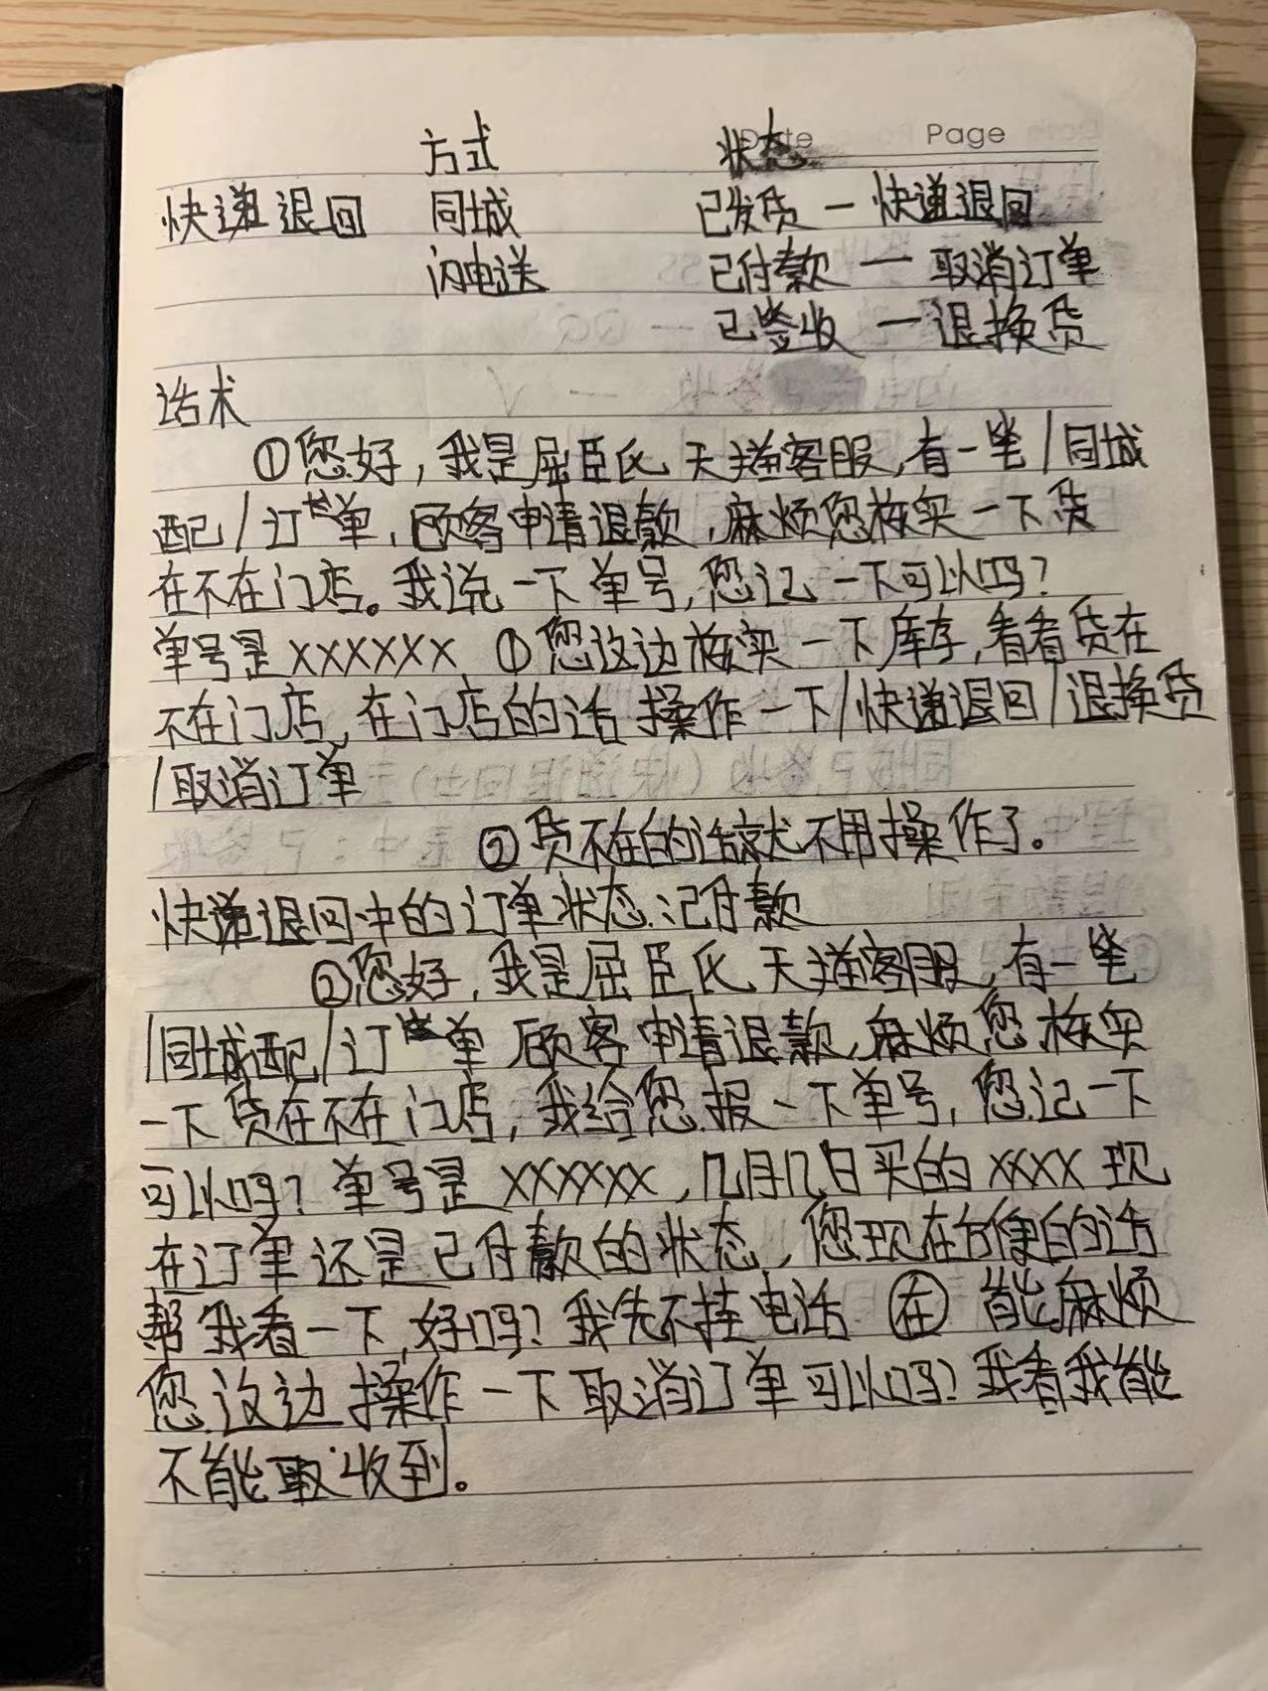 Date Page
方式 状态
快递退回 同城 已发货 — 快递退回
闪电送 已付款 — 取消订单
已签收 — 退换货
话术
①您好,我是屈臣氏天猫客服,有一笔/同城
配/订单,顾客申请退款,麻烦您核实一下货
在不在门店。我说一下单号,您记一下可以吗?
单号是XXXXXX ①您这边核实一下库存,看看货在
不在门店,在门店的话操作一下/快递退回/退换货
/取消订单
②货不在的话就不用操作了。
快递退回中的订单状态:已付款
②您好,我是屈臣氏天猫客服,有一笔
/同城配/订单 顾客申请退款,麻烦您核实
一下货在不在门店,我给您报一下单号,您记一下
可以吗?单号是XXXXXX,几月几日买的XXXX现
在订单还是已付款的状态,您现在方便的话
帮我看一下,好吗?我先不挂电话 在 能麻烦
您这边操作一下取消订单可以吗?我看我能
不能取收到。